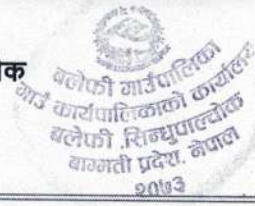 क
बलेफी गाउँपालिका
गाउँ कार्यपालिकाको कार्यालय
बलेफी ,सिन्धुपाल्चोक
बागमती प्रदेश, नेपाल
२०७३